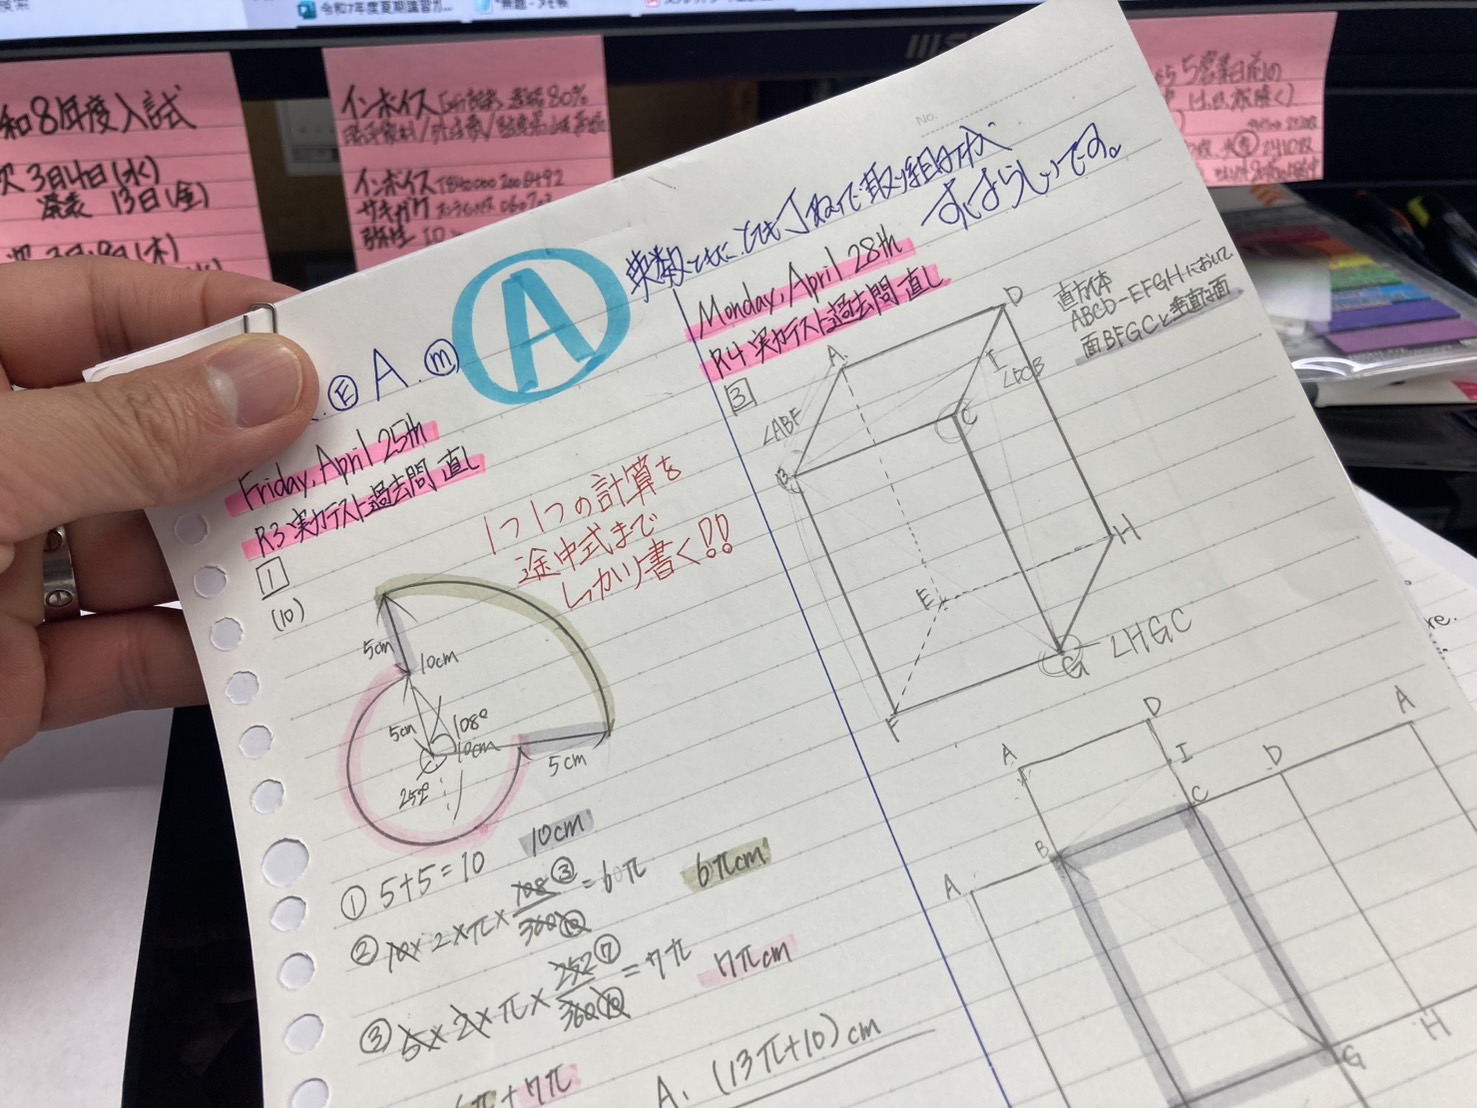 令和7年度夏期講習ガ...
和8年度入試
次 3月4日(水)
発表 13日(金)
インボイス
80%
インボイス
サキガケ
5営業日前の
No.
英数ともに、とても丁ねいで取り組めていて
すばらしいです。
E A. m
A
Friday, April 25th
R3 実力テスト過去問直し
1つ1つの計算を
途中式まで
しっかり書く!!
1
(10)
5cm
10cm
5cm
108°
10cm
252°
5cm
① 5+5=10
10cm
② 10×2×π×108③/360⑩=6π
6πcm
③ 5×2×π×252⑦/360⑩=7π
7πcm
6π+7π
A. (13π+10)cm
Monday, April 28th
R4 実力テスト過去問直し
3
直方体
ABCD-EFGHにおいて
面BFGCと垂直な面
D
A
I
∠ABF
C
B
H
E
G
∠HGC
F
D
A
A
I
D
C
B
A
G
H